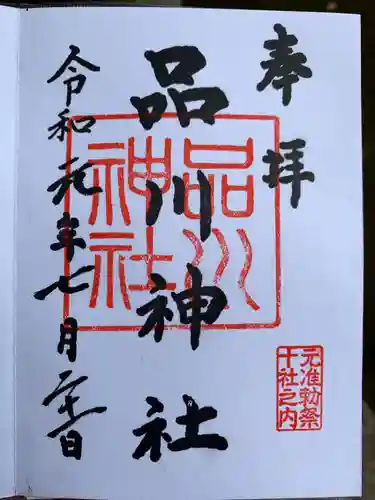 奉拝
品川神社
品川神社
元准勅祭
十社之内
令和元年七月二十一日